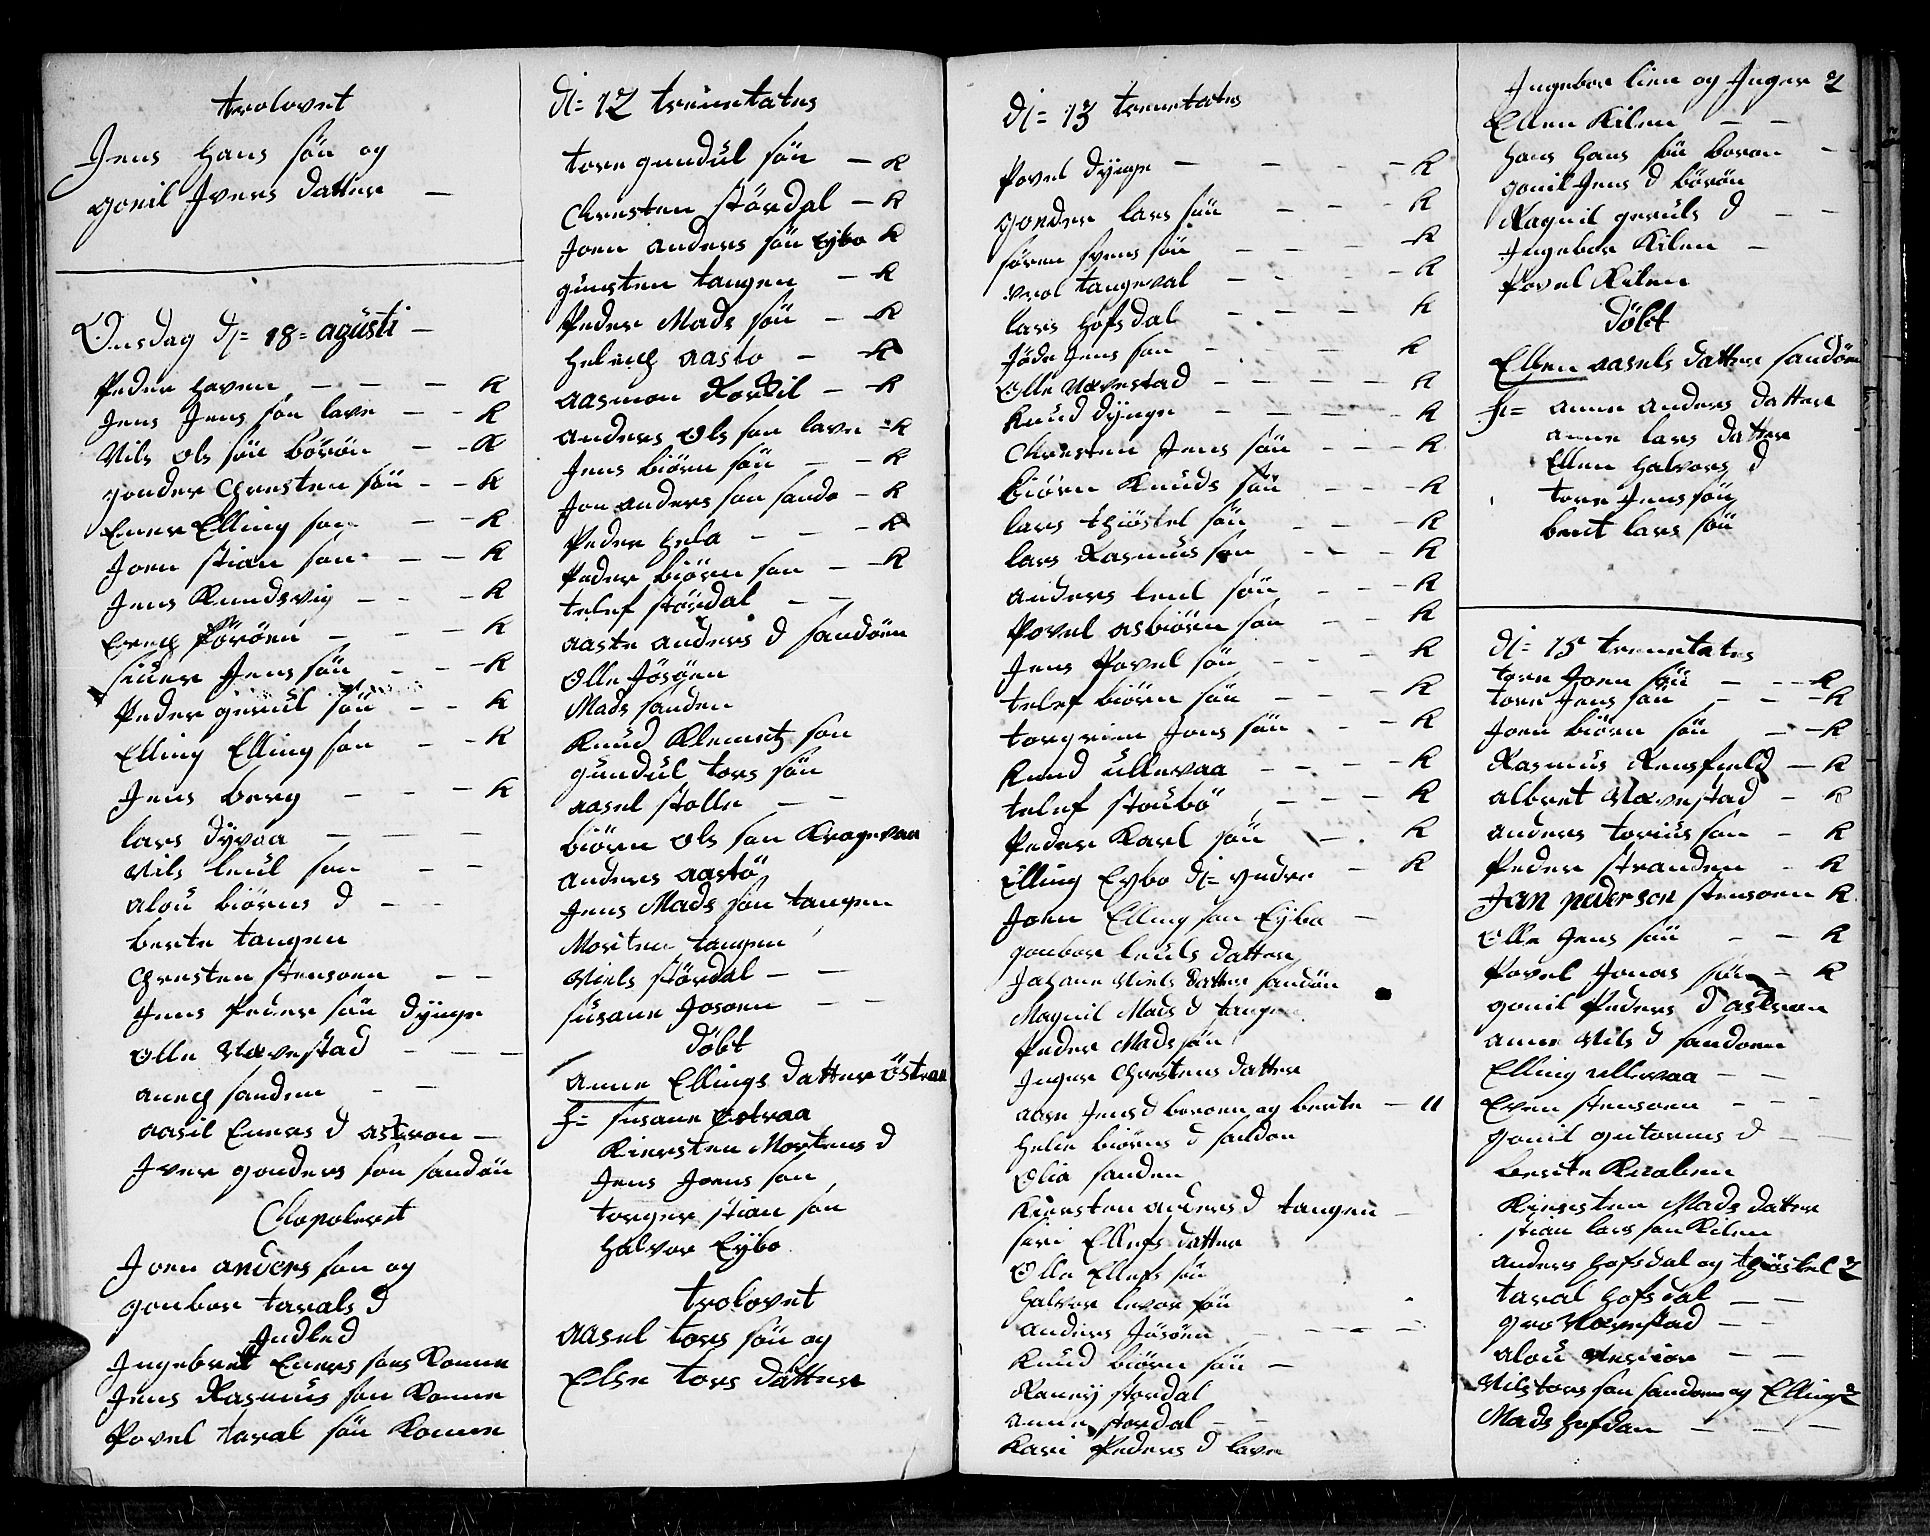 trolovet
Jens Hans søn og
gonil Ivers datter —
Onsdag d/= 18 = agusti —
Peder haven — — — K
Jens Jens søn lave — - K
Nils Ols søn börön — - K
gonder Chresten søn - - K
Ener Elling søn — - K
Joen stian søn — - K
Jens Knudsvig — - - K
Ereng Pöröen — - - K
siuer Jens søn — - - K
Peder gerul søn — - K
Elling Elling søn — - K
Jens berg — — - K
lars dyvaa — — —
Nils leul søn — —
alou biörns d — —
berte tangen
Chresten stensoen — —
Jens Peder søn dynge
Olle Navestad — — —
aneg sanden — —
aasil Eners d astrøn —
Iver gonders søn sandön
Chopoleret
Joen anders søn og
gonbor tarals d
Indled
Ingebret Eners søns Konne
Jens Rasmus søn Konne
Povel taral søn Konne
d/= 12 trinitates
tore gundul søn — K
Chresten stördal — K
Joen anders søn Eybo K
gunsten tangen — K
Peder Mads søn — K
heleng aasto — K
aasmon Kordil — K
anders Ols søn lave = K
Jens biörn søn — — K
Jon anders søn sando — K
Peder hela — — — K
Peder biörn søn — — K
telef stördal — —
aaste anders d sandöen
Olle Jösöen
Mads sanden
Knud Klemetz søn
gundul tors søn
aasel stolle — —
biörn Ols søn Kragevaa
anders aastö
Jens Mads søn tangen
Morten tangen
Niels stördal — —
susane Josoen — —
döbt
anne Ellings datter östraa
f= susane østraa
Kiersten Mortens d
Jens Joens søn
torger stian søn
halvor Eybo
trolovet
aasel tors søn og
Else tors datter
d/= 13 trenetates
Povel dynge — — — — K
gonder lars søn — — — K
sören svens søn — — — K
vrol tangeval — — — — K
lars hofsdal — — — K
Jöde Jens søn — — — K
Olle Navestad — — — — K
Knud dynge — — — — K
Chresten Jens søn — — — K
biörn Knuds søn — — — K
lars thiöstel søn — — — K
lars Rasmus søn — — — K
anders leul søn — — K
Povel asbiörn søn — — K
Jens Povel søn — — — K
telef biörn søn — — — K
torgrim Jens søn — — K
Knud ullevaa — — — — K
telef stoubö — — — K
Peder Karl søn — . K
Elling Eybo d/= yndre — K
Joen Elling søn Eybo —
gonbor leuls datter
Johane Niels datter sandön
Magnil Mads d tangen
Peder Mads søn
Inger Chrestens datter
aase Jens d boroen og berte — 11
helie biörns d sandøn
Olia sanden
Kiersten anders d tangen —
siri Ellefs datter
Olle Ellefs søn
halvor levor søn
anders Jösöen — — — — —
Knud biörn søn —
Raney stordal
anne stordal — —
Kari Peders d lave
Ingebor lien og Inger 2
Ellen Kilen — —
hans hans søn boron — —
gonil Jens d börön
Ragnil geruls d — —
Ingebor Kilen —
Povel Kilen
döbt
Ellen aasels datter sandöen
f= anne anders datter
anne lars datter
Ellen halvors d
tore Jens søn
bent lars søn
d/= 15 trenetates
tore Joen søn — — — K
tore Jens søn — — — K
Joen biörn søn — — K
Rasmus Rensfield — K
albret Navestad — K
anders torius søn — K
Peder stranden — K
Jan pederson stensoen K
Olle Jens søn — — K
Povel Jonas søn — K
gonil Peders d astrøn
anne Nils d sandoen
Elling ullevaa — —
Even stensoen — — —
gonil gutorms d — —
berte Kraben
Kiersten Mads datter
stian lars søn Kilen
anders hofsdal og thiöstel 2
taral hofsdal — —
gro Navestad — —
alou — —
Nils tors søn sandoen og Elling 2
Mads hofdan — — —